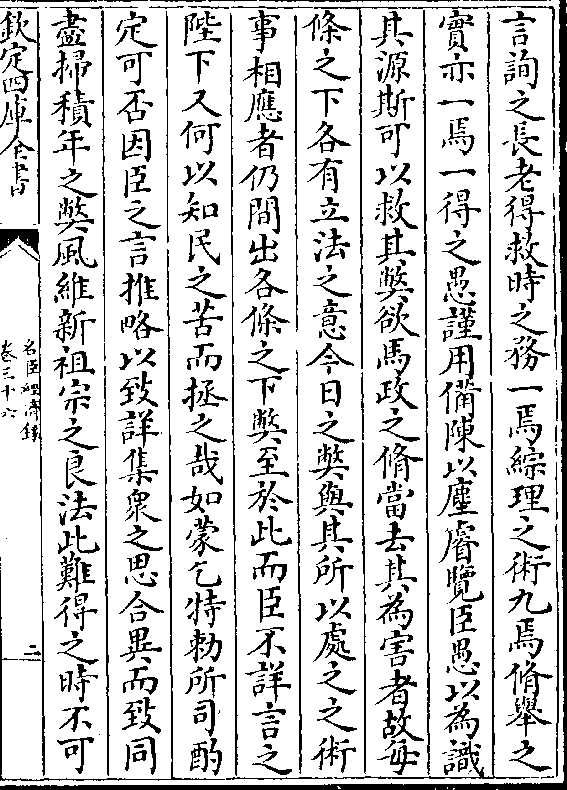 言詢之長老得救時之務一焉綜理之術九焉脩舉之
實亦一焉一得之愚謹用備陳以塵睿覽臣愚以為識
其源斯可以救其弊欲馬政之脩當去其為害者故每
條之下各有立法之意今日之弊與其所以處之之術
事相應者仍間出各條之下弊至於此而臣不詳言之
陛下又何以知民之苦而拯之哉如蒙乞特勅所司酌
定可否因臣之言推略以致詳集衆之思合異而致同
盡掃積年之弊風維新祖宗之良法此難得之時不可
欽定四庫全書
名臣經濟錄
卷三十六
二